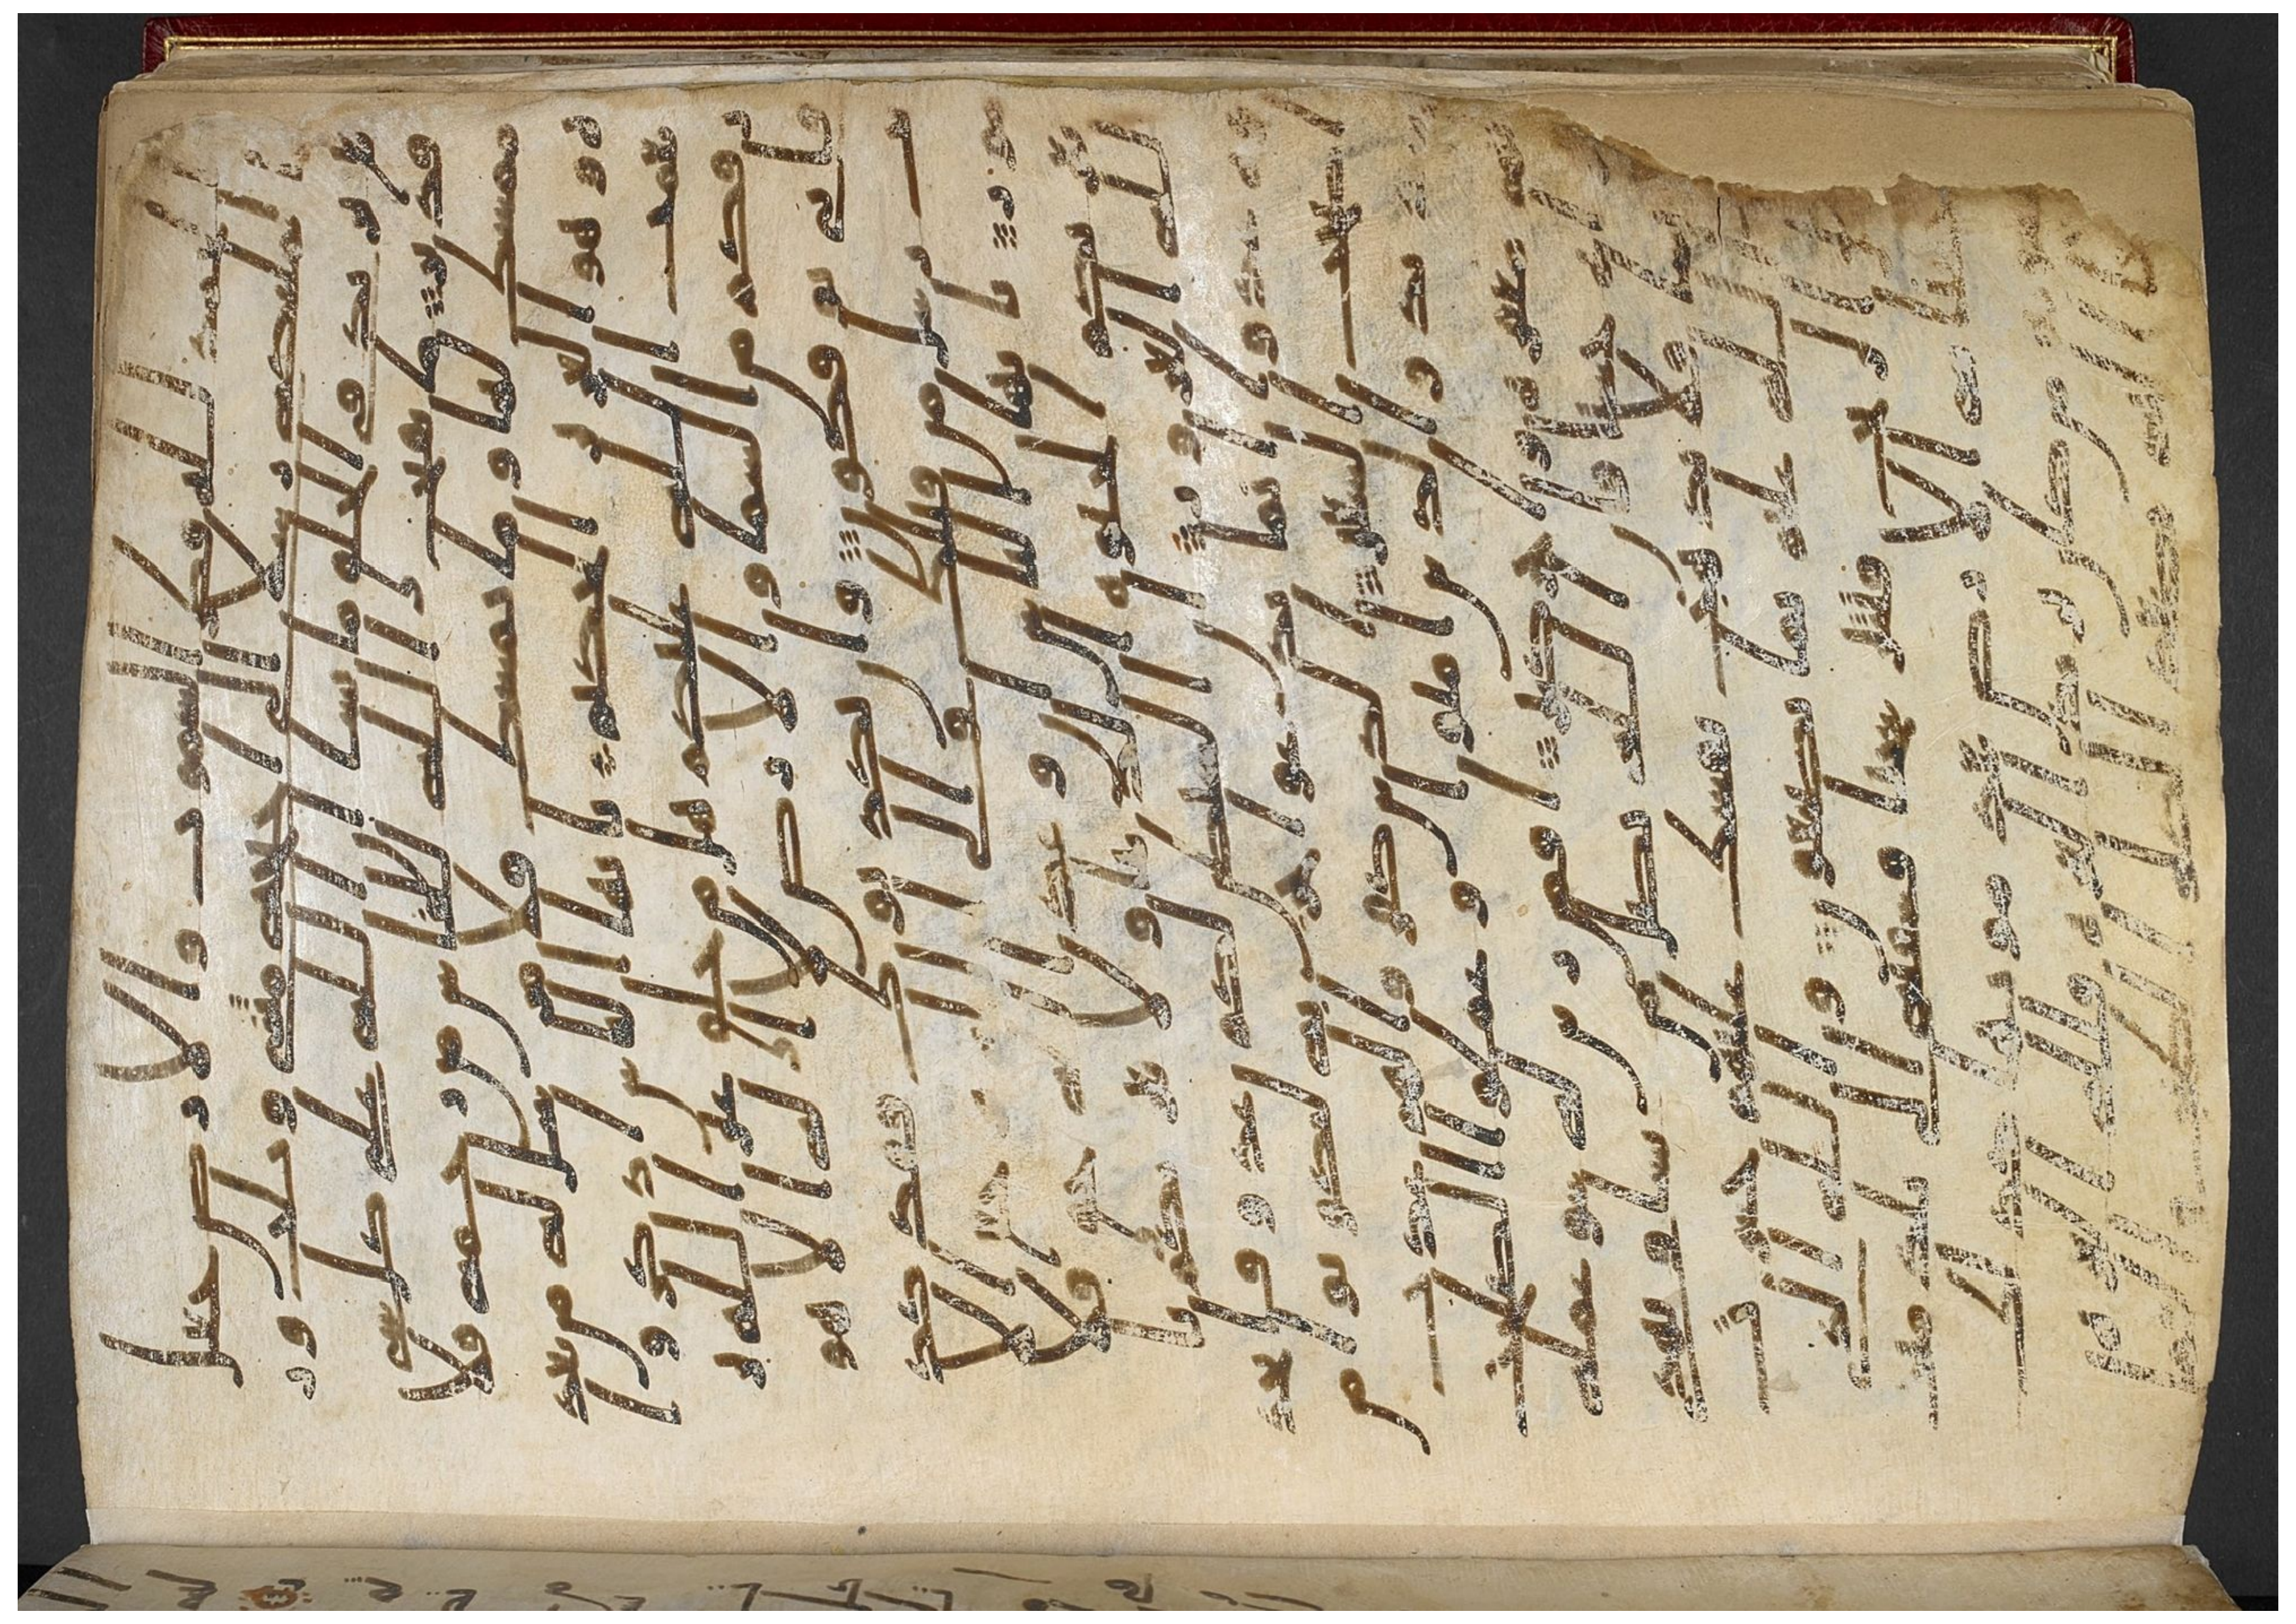 الحمد لله فطر السموت والارض جعل
الملئكه رسلا اولى اجنحه مثنى وثلث ور
بع يزيد فى الخلق ما يشا ان الله على كل شى
قدير ما يفتح الله للناس من رحمه فلا
ممسك لها وما يمسك فلا مرسل له من بعـ
ده وهو العزيز الحكيم يايها الناس اذكروا
نعمت الله عليكم هل من خلق غير الله ير
زقكم من السما والارض لا اله الا هو
فانى توفكون وان يكذبوك فقد كذبت
رسل من قبلك والى الله ترجع الا
مور يايها الناس ان وعد الله حق فلا
تغرنكم الحيوه الدنيا ولا يغرنكم با
لله الغرور ان الشيطن لكم عدو فا
تخذوه عدوا انما يدعوا حزبه ليكونوا من
اصحب السعير الذين كفروا لهم عذ
اب شديد والذين امنوا وعملوا الصلحت
لهم مغفره واجر كبير افمن زين له سو عمله
فراه حسنا فان الله يضل من يشا ويهدى
من يشا فلا تذهب نفسك عليهم حسرت
ان الله عليم بما يصنعون والله الذى
ارسل الريح فتثير سحبا فسقنه الى بلد ميت
فاحيينا به الارض بعد موتها كذلك
النشور من كان يريد العزه فلله العزه